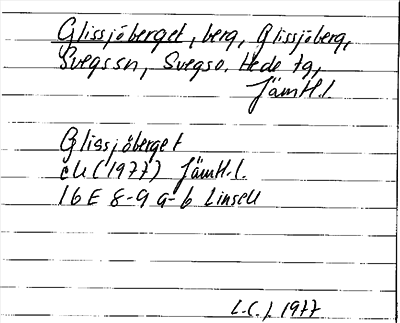 Glissjöberget, berg, Glissjöberg,
Svegssn, Svegs o. Hede tg,
Jämtl.l.
Glissjöberget
ek (1977) Jämtl.l.
16E 8-9 a-b Linsell
L.C.J. 1977